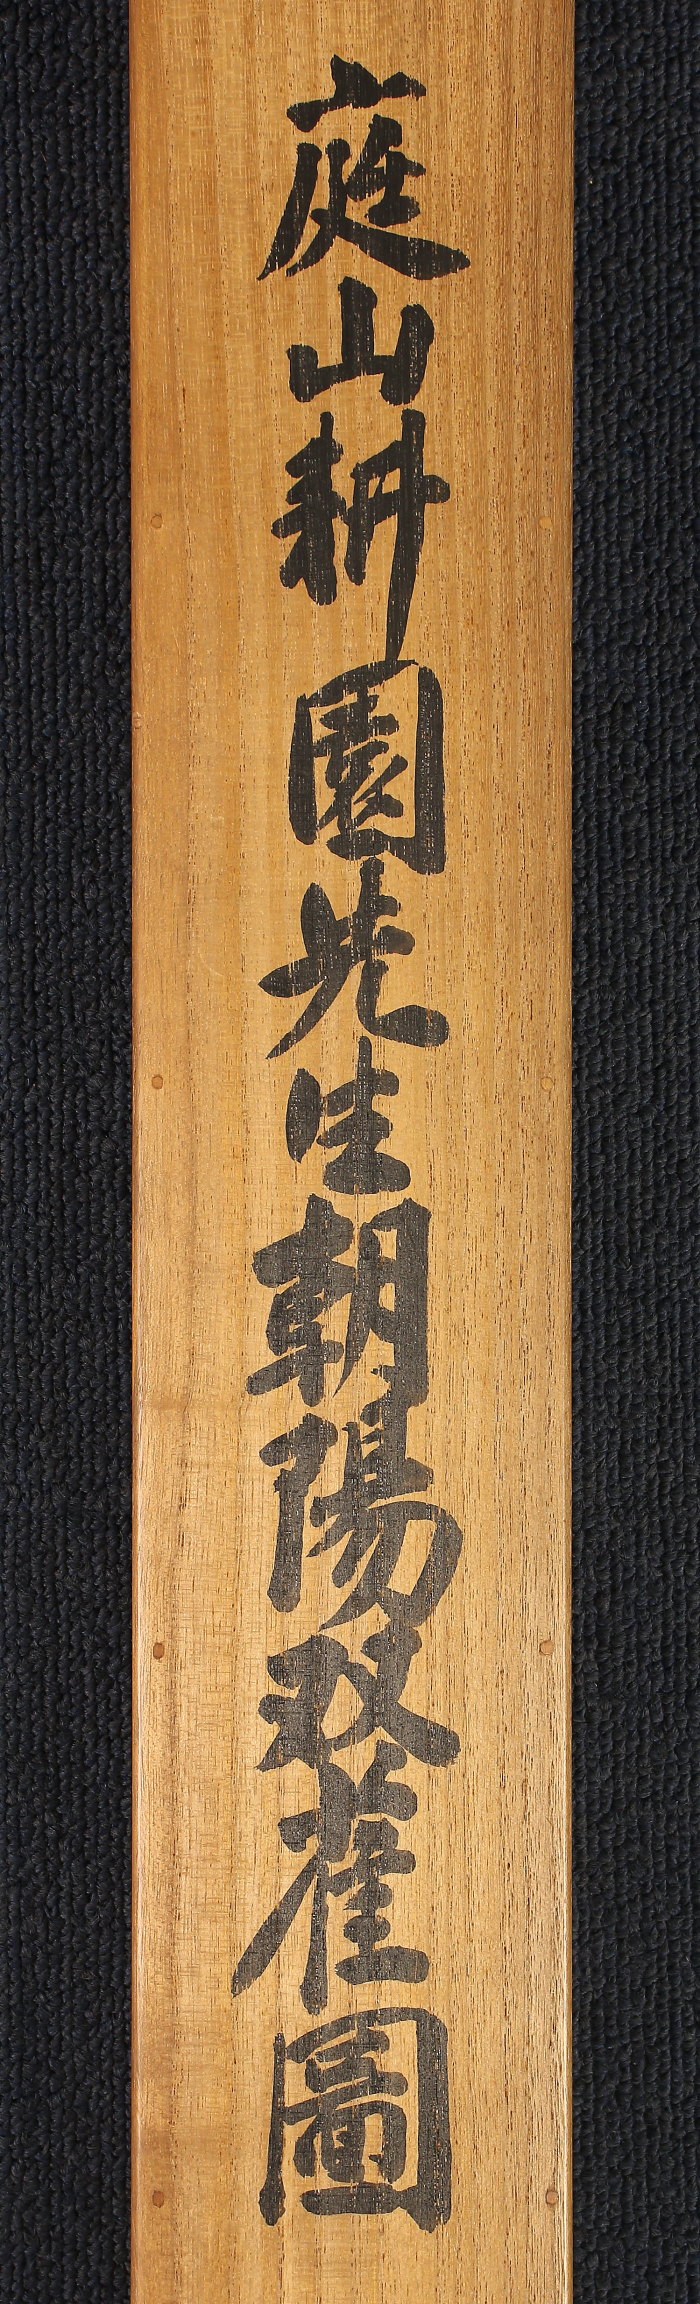 庭山耕園先生朝陽双雀圖